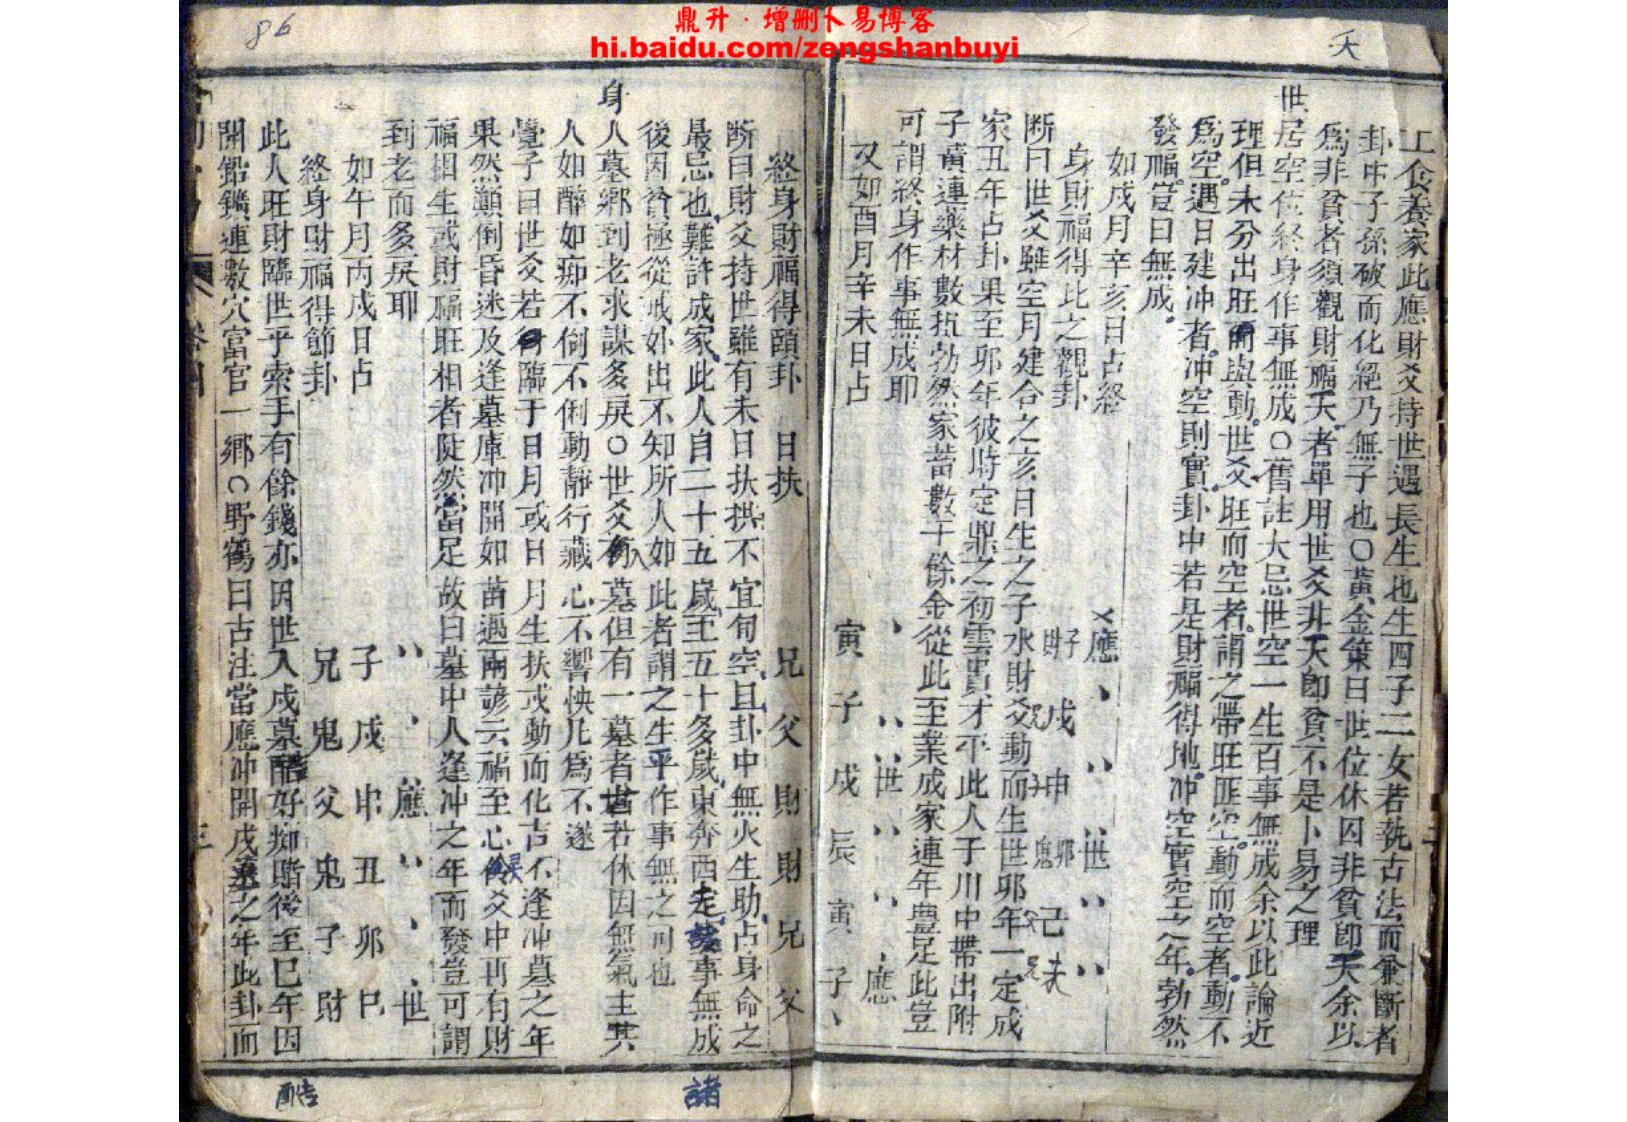 鼎升·增删卜易博客
hi.baidu.com/zengshanbuyi
86
夭
工食養家此應財爻持世遇長生也生四子二女若執古法而僉斷者
卦中子孫破而化絕乃無子也○黃金策曰世位休囚非貧卽夭余以
爲非貧者須觀財福夭者單用世爻非夭卽貧不是卜易之理
世居空位終身作事無成○舊註大忌世空一生百事無成余以此論近
理但未分出旺與動世爻旺而空者謂之帶旺匪空動而空者動不
爲空遇日建冲者冲空則實卦中若是財福得地冲空實空之年勃然
發福豈曰無成
如戌月辛亥日占終
身財福得此之觀卦
應 世
財子 戌 申 卯 己 未
兄 鬼
斷曰世爻雖空月建合之亥日生之子水財爻動而生世卯年一定成
家丑年占卦果至卯年彼時定鼎之初雲貴才平此人于川中帶出附
子黃連藥材數抵勃然家蓄數千餘金從此至業成家連年豊足此豈
可謂終身作事無成耶
又如酉月辛未日占
世 應
寅 子 戌 辰 寅 子
終身財福得頤卦 日扶
兄 父 財 財 兄 父
斷曰財爻持世雖有未日扶拱不宜旬空且卦中無火生助占身命之
最忌也難許成家此人自二十五歲至五十多歲東奔西走諸事無成
後因貧極從戎外出不知所人如此者謂之生平作事無之可也
身
人墓鄉到老求謀多戾○世爻入墓但有一墓者若休囚無氣主其
人如醉如痴不倒不俐動靜行藏心不響怏凡爲不遂
覺子曰世爻若臨于日月或日月生扶或動而化吉不逢冲墓之年
果然顚倒昏迷及逢墓庫冲開如苗遇雨諺云福至心靈爻中再有財
福相生或財福旺相者陡然富足故曰墓中人逢冲之年而發豈可謂
到老而多戾耶
如午月丙戌日占
終身財福得節卦
應 世
子 戌 申 丑 卯 巳
兄 鬼 父 鬼 子 財
此人旺財臨世乎索手有餘錢亦因世入戌墓酷好痴賭後至巳年因
開鉛鑛連數穴富官一鄉○野鶴曰古注當應冲開戌墓之年此卦而
諸
酷